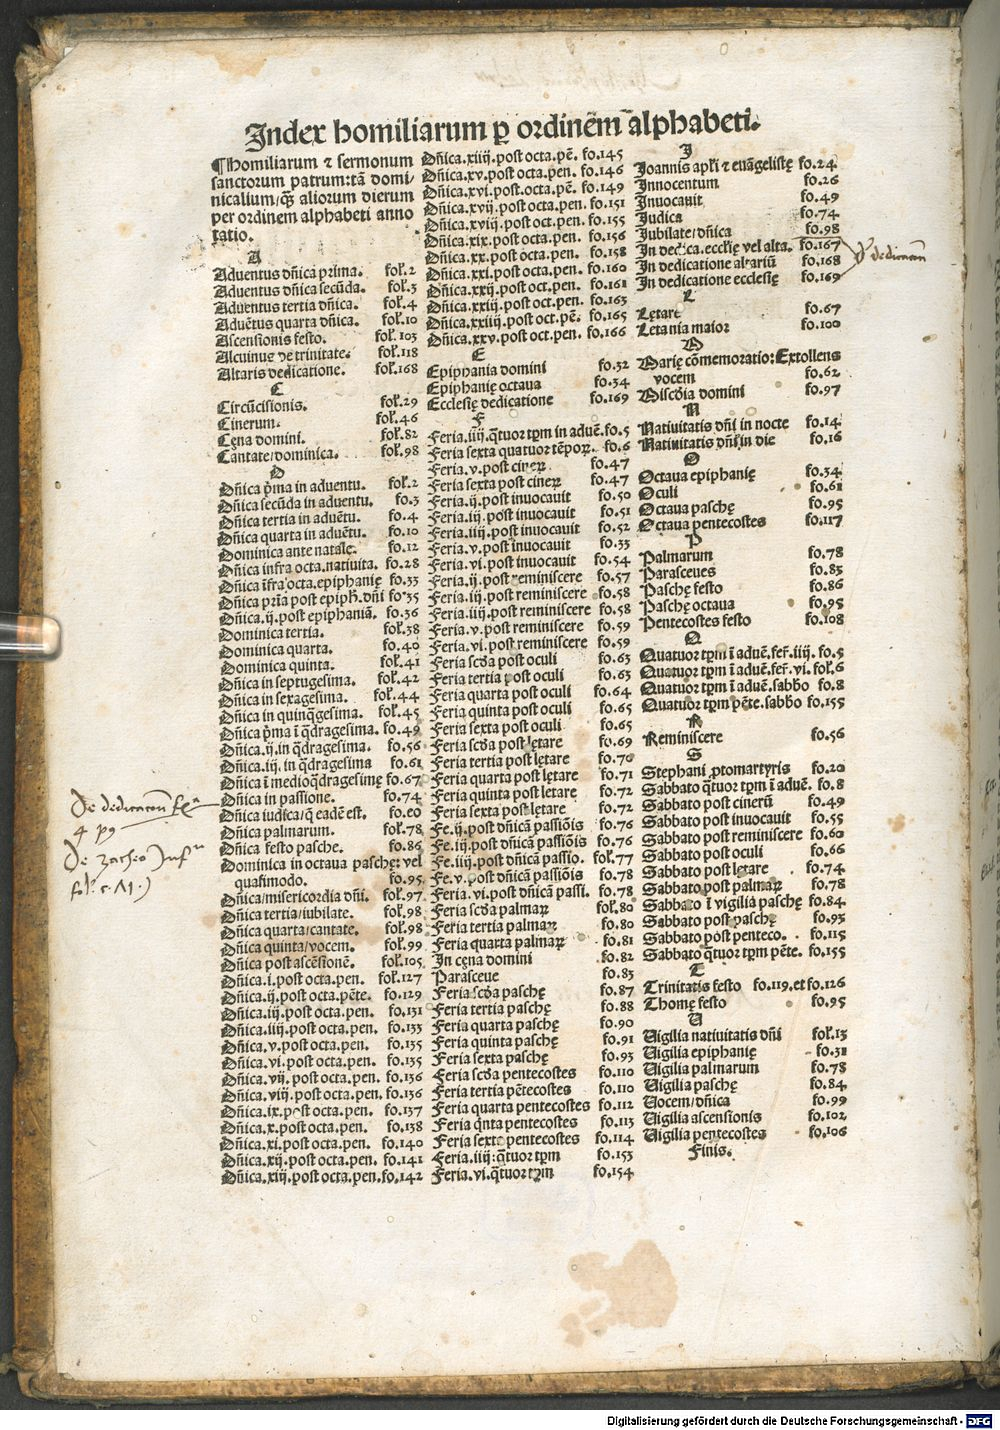 Index homiliarum ꝑ ordinẽm alphabeti.
¶Homiliarum ⁊ sermonum
sanctorum patrum: tã domi-
nicalium/q̃ȝ aliorum dierum
per ordinem alphabeti anno
tatio.
A
Aduentus dñica prima. fol.2
Aduentus dñica secũda. fol.3
Aduentus tertia dñica. fol.4
Aduẽtus quarta dñica. fol.10
Ascensionis festo. fol.103
Alcuinus de trinitate. fol.118
Altaris dedicatione. fol.168
C
Circũcisionis. fol.29
Cinerum. fol.46
Cęna domini. fol.82
Cantate/dominica. fol.98
D
Dñica p̃ma in aduentu. fol.2
Dñica secũda in aduentu. fo.3
Dñica tertia in aduẽtu. fo.4
Dñica quarta in aduẽtu. fo.10
Dominica ante natalę. fo.12
Dñica infra octa.natiuita. fo.28
Dñica ĩfra octa.epiphanię fo.33
Dñica pria post epiph.dñi fo.35
Dñica.ij.post epiphaniã. fo.36
Dominica tertia. fol.38
Dominica quarta. fo.40
Dominica quinta. fol.41
Dñica in septugesima. fol.42
Dñica in sexagesima. fol.44
Dñica in quinq̃gesima. fol.45
Dñica p̃ma ĩ q̃dragesima. fo.49
Dñica.ij.in q̃dragesima. fo.56
Dñica.iij.in q̃dragesima fo.61
Dñica ĩ medioq̃dragesimę fo.67
Dñica in passione. fo.74
Dñica iudica/q̃ eadẽ est. fo.80
Dñica palmarum. fol.78
Dñica festo pasche. fo.86
Dominica in octaua paschę: vel
quasimodo. fo.95
Dñica/misericordia dñi. fol.97
Dñica tertia/iubilate. fol.98
Dñica quarta/cantate. fol.98
Dñica quinta/vocem. fol.99
Dñica post ascẽsionẽ. fol.105
Dñica.i.post octa.pen. fol.127
Dñica.ij.post octa.pẽte. fo.129
Dñica.iij.post octa.pen. fo.131
Dñica.iiij.post octa.pen. fo.133
Dñica.v.post octa.pen. fo.135
Dñica.vi.post octa.pen. fo.135
Dñica.vij.post octa.pen. fo.136
Dñica.viij.post octa.pen. fo.136
Dñica.ix.post octa.pen. fo.137
Dñica.x.post octa.pen. fo.138
Dñica.xi.post octa.pen. fo.140
Dñica.xij.post octa.pen. fo.141
Dñica.xiij.post octa.pen. fo.142
Dñica.xiiij.post octa.pẽ. fo.145
Dñica.xv.post octa.pen. fo.146
Dñica.xvi.post octa.pẽ. fo.149
Dñica.xvij.post octa.pen. fo.151
Dñica.xviij.post oct.pen. fo.155
Dñica.xix.post octa.pen. fo.156
Dñica.xx.post octa.pen. fo.158
Dñica.xxi.post octa.pen. fo.160
Dñica.xxij.post oct.pen. fo.161
Dñica.xxiij.post oct.pen. fo.163
Dñica.xxiiij.post oct.pẽ. fo.165
Dñica.xxv.post oct.pen. fo.166
E
Epiphania domini fo.32
Epiphanię octaua fo.34
Ecclesię dedicatione fo.169
F
Feria.iiij.q̃tuor tꝑm in aduẽ.fo.5
Feria sexta quatuor tẽpoꝝ. fo.6
Feria.v.post cineꝝ fo.47
Feria sexta post cineꝝ fo.47
Feria.ij.post inuocauit fo.50
Feria.iij.post inuocauit fo.51
Feria.iiij.post inuocauit fo.52
Feria.v.post inuocauit fo.33
Feria.vi.post inuocauit fo.54
Feria.ij.post reminiscere fo.57
Feria.iij.post reminiscere fo.58
Feria.iiij.post reminiscere fo.58
Feria.v.post reminiscere fo.59
Feria.vi.post reminiscere fo.59
Feria scđa post oculi fo.63
Feria tertia post oculi fo.63
Feria quarta post oculi fo.64
Feria quinta post oculi fo.65
Feria sexta post oculi fo.65
Feria scđa post lętare fo.69
Feria tertia post lętare fo.70
Feria quarta post lętare fo.71
Feria quinta post letare fo.72
Feria sexta post lętare fo.72
Fe.ij.post dñicã passiõis fo.76
Fe.iij.post dñicã passiõis fo.76
Fe.iiij.post dñicã passio. fol.77
Fe.v.post dñicã passiõis fo.78
Feria.vi.post dñicã passi. fo.78
Feria scđa palmaꝝ fol.80
Feria tertia palmaꝝ fo.80
Feria quarta palmaꝝ fo.81
In cęna domini fo.82
Parasceue fo.83
Feria scđa paschę fo.87
Feria tertia paschę fo.88
Feria quarta paschę fo.90
Feria quinta paschę fo.91
Feria sexta paschę fo.93
Feria scđa pentecostes fo.110
Feria tertia pẽtecostes fo.110
Feria quarta pentecostes fo.112
Feria q̃nta pentecostes fo.113
Feria sexta pentecostes fo.114
Feria.iiij:q̃tuor tꝑm fo.153
Feria.vi.q̃tuor tꝑm fo.154
I
Joannis apłi ⁊ euãgelistę fo.24
Innocentum fo.26
Inuocauit fo.49
Iudica fo.74
Iubilate/dñica fo.98
In dedica.ecclię vel alta. fo.167
In dedicatione altariũ fo.168
In dedicatione ecclesię fo.169
L
Lętare fo.67
Letania maior fo.100
M
Marię cõmemoratio: Extollens
vocem fo.62
Miscđia domini fo.97
N
Natiuitatis dñi in nocte fo.14
Natiuitatis dñi in die fo.16
O
Octaua epiphanię fo.34
Oculi fo.61
Octaua paschę fo.95
Octaua pentecostes fo.117
P
Palmarum fo.78
Parasceues fo.83
Paschę festo fo.86
Paschę octaua fo.95
Pentecostes festo fo.108
Q
Quatuor tꝑm ĩ aduẽ.fer.iiij. fo.5
Quatuor tꝑm ĩ aduẽ.fer.vi. fol.6
Quatuor tꝑm ĩ aduẽ.sabbo fo.8
Quatuor tꝑm pẽte.sabbo fo.155
R
Reminiscere fo.56
S
Stephani ꝓtomartyris fo.20
Sabbato q̃tuor tꝑm ĩ aduẽ. fo.8
Sabbato post cinerũ fo.49
Sabbato post inuocauit fo.55
Sabbato post reminiscere fo.60
Sabbato post oculi fo.66
Sabbato post lętare fo.74
Sabbato post palmaꝝ fo.78
Sabbato ĩ vigilia paschę fo.84
Sabbato post paschę fo.93
Sabbato post penteco. fo.115
Sabbato q̃tuor tꝑm pẽte. fo.155
T
Trinitatis festo fo.119.et fo.126
Thomę festo fo.95
U
Uigilia natiuitatis dñi fol.13
Uigilia epiphanię fo.31
Uigilia palmarum fo.78
Uigilia paschę fo.84
Uocem/dñica fo.99
Uigilia ascensionis fo.102
Uigilia pentecostes fo.106
Finis.
De dedicacon
De zacheo
Digitalisierung gefördert durch die Deutsche Forschungsgemeinschaft - DFG